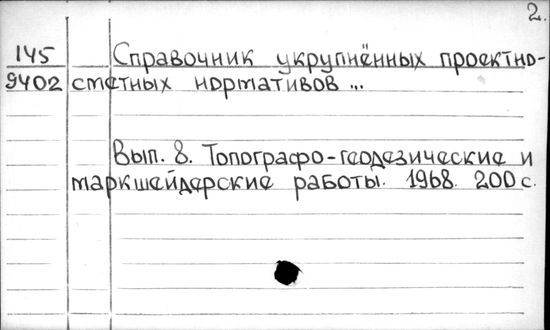 2.
145 Справочник укрупнённых проектно-
9402 сметных нормативов ...
Вып. 8. Топографо-геодезические и
маркшейдерские работы. 1968. 200 с.